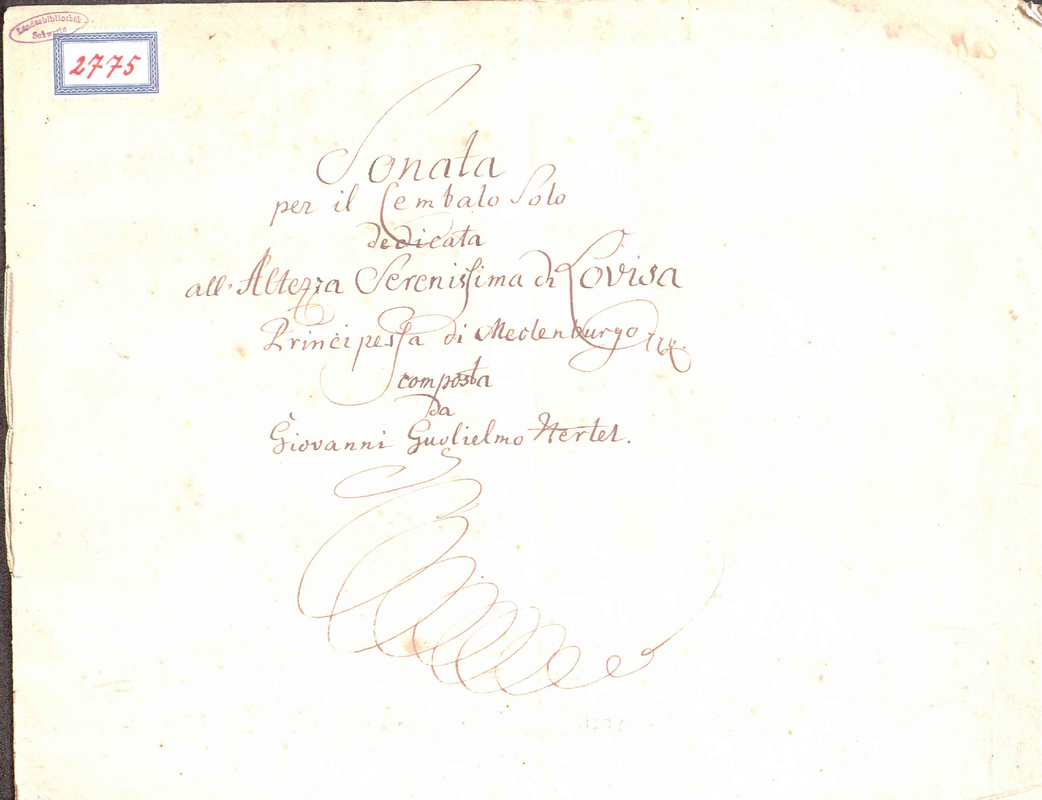 Landesbibliothek
Schwerin
2775
Sonata
per il Cembalo Solo
dedicata
all' Altezza Serenissima di Lovisa
Principessa di Meclenburgo
composta
da
Giovanni Guglielmo Hertel.